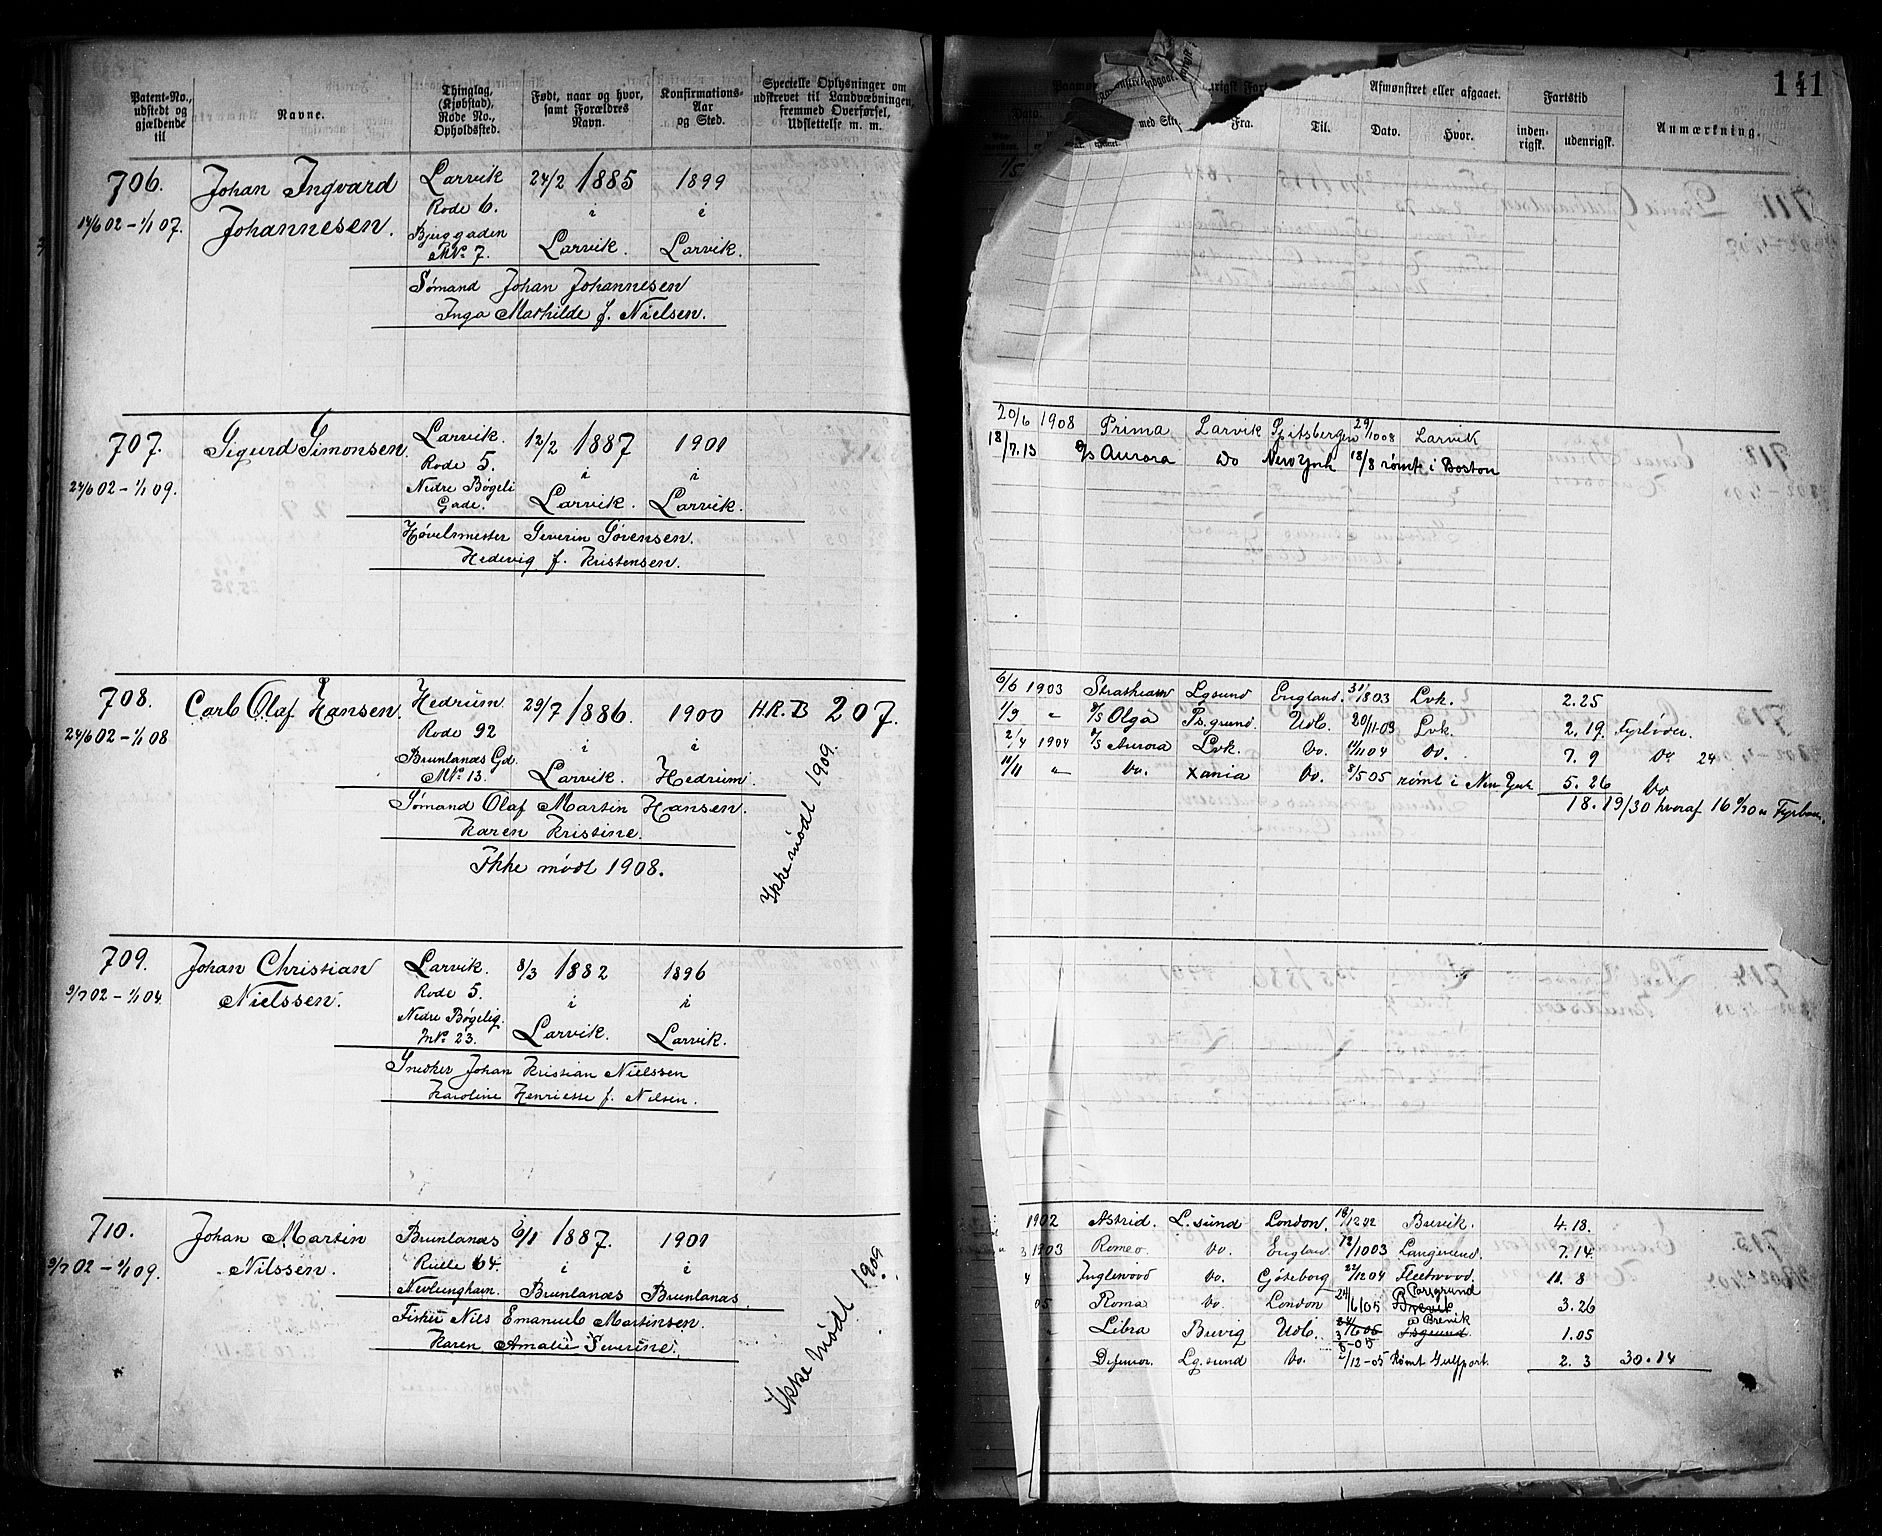 Patent-No., udstedt og gjældende til
Navne.
Thinglag, (Kjøbstad), Rode No., Opholdssted.
Født, naar og hvor, samt Forældres Navn.
Konfirmations-Aar og Sted.
Specielle Oplysninger om udskrevet til Landværbningen, fremmed Overførsel, Udslettelse m. m.
706. Johan Ingvard Larvik 24/2 1885 1899
14/6 02 - 1/1 07. Johannesen. Rode 6. i i
Larvik. Larvik.
No. 7.
Sømand Johan Johannesen
Inga Mathilde f. Nielsen.
707. Sigurd Simonsen. Larvik. 12/2 1887 1901
Rode 5. i i
24/6 02 - 1/1 09. Nedre Bøgeli
Gade. Larvik. Larvik.
Høvelsmester Severin Sørensen.
Hedevig f. Kristensen.
708. Carl Olaf Hansen. Hedrum. 29/7 1886. 1900 H.R.B 207.
24/6 02 - 1/1 08 Rode 92 i i
Brunlanæs Gd.
No. 13. Larvik. Hedrum.
Sømand Olaf Martin Hansen.
Karen Kristine.
Ikke mødt 1908.
Ikke mødt 1909.
709. Johan Christian Larvik. 8/3 1882 1896
9/7 02 - 1/1 04. Nielssen. Rode 5. i i
Nedre Bøgelig.
No. 23. Larvik. Larvik.
Snedker Johan Kristian Nielssen
Karoline f. Nilsen.
710. Johan Martin Brunlanæs 6/1 1887. 1901
9/7 02 - 1/1 09. Nilssen. 64. i i
Nevlunghavn. Brunlanæs Brunlanæs
Fisker Nils Emanuel Martinsen.
Karen Amalie Severine.
Ikke mødt 1909
141
Fra. Til.
Afmønstret eller afgaaet.
Dato. Hvor.
Fartstid
inden-rigsk. udenrigsk.
Anmærkning.
20/6 1908 Prima Larvik Spitsbergen 29/10 08 Larvik
18/7.13 S/S Aurora Do New York 18/8 rømt i Boston
6/6 1903 Lgsund England. 31/8 03 Lvk. 2.25
1/9 " S/S Olga Ps.grund. Udl. 20/11 03 Lvk. 2.19. Fyrbøder.
2/4 1904 S/S Aurora Lvk. Do. 11/11 04 Do. 7. 9 Do 24
11/11 " Do. Xania Do. 8/5 05 rømt i New York 5. 26 Do
18. 19/30 hvoraf 16
1902 Astrid. L.sund London. 18/12 02 Brevik. 4.18.
1903 Romeo Do. England. 12/10 03 Langesund. 7.14.
Inglewood Do. Göteborg 22/12 04 Fleetwood. 11. 8
Porsgrund
05 Roma Do. London 24/6 05 Brevik 3.26
Brevik
Libra Brevig Udl. 1.05
Lg.sund Do. /12-05 Rømt Gulfport. 2. 3 30.14